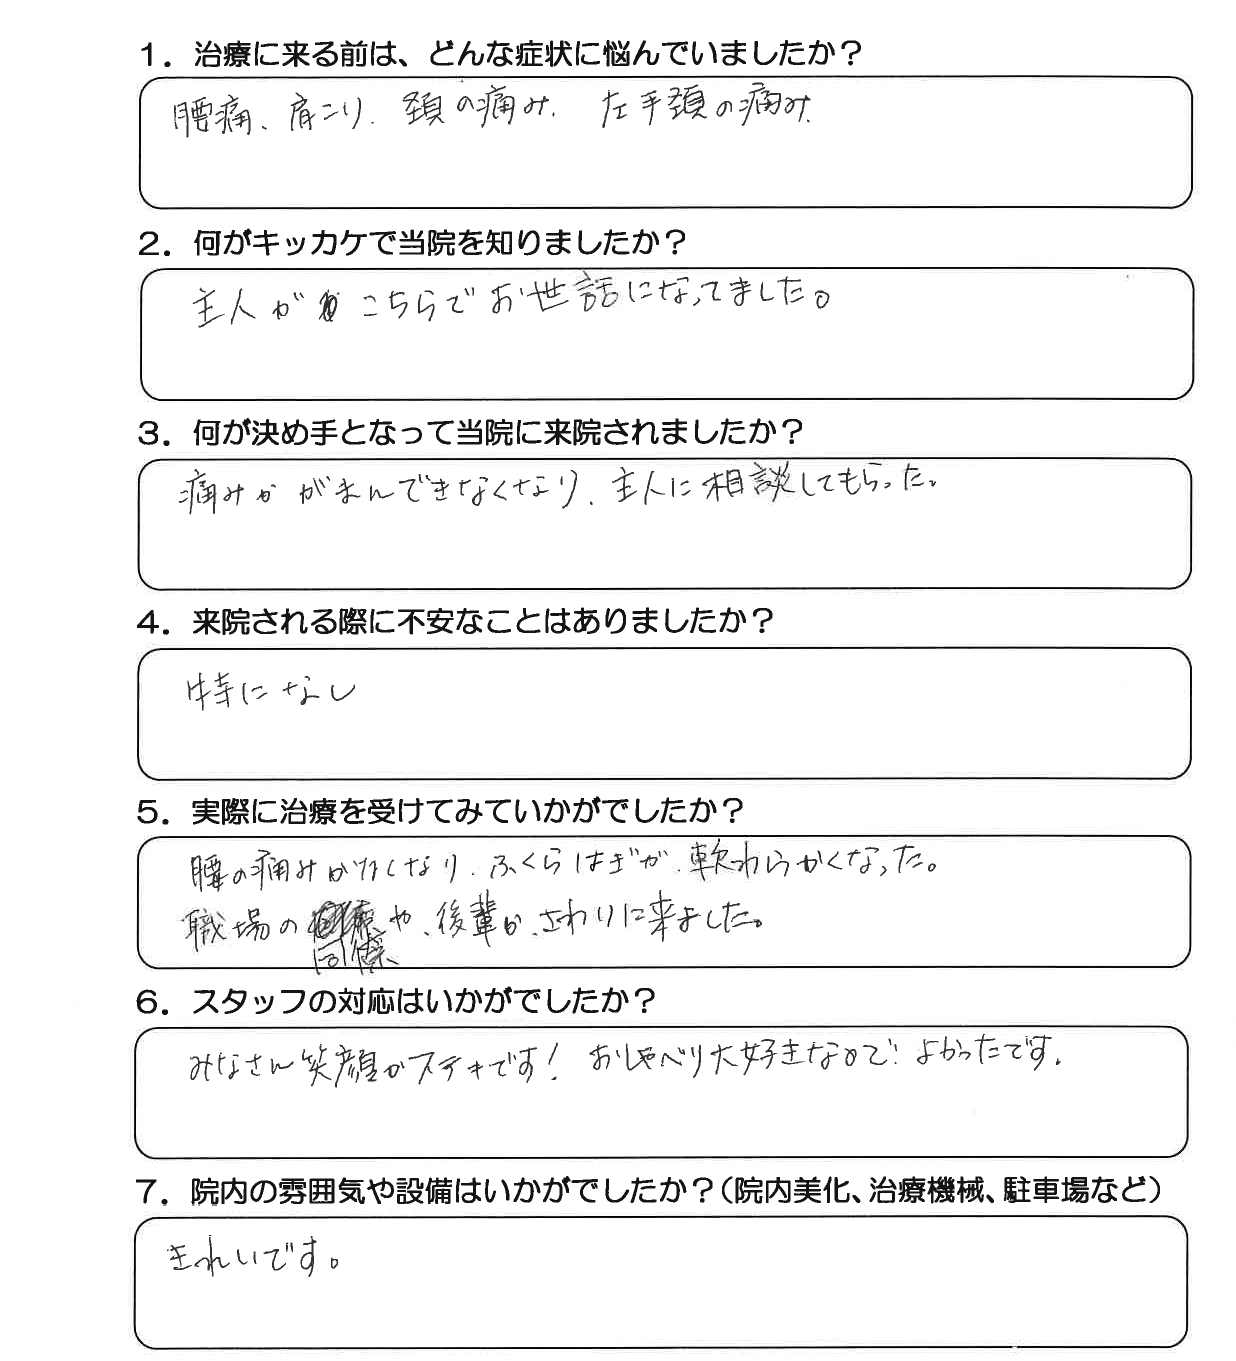 1．治療に来る前は、どんな症状に悩んでいましたか？
腰痛、肩こり、頚の痛み、左手頚の痛み
2．何がキッカケで当院を知りましたか？
主人が こちらでお世話になってました。
3．何が決め手となって当院に来院されましたか？
痛みががまんできなくなり、主人に相談してもらった。
4．来院される際に不安なことはありましたか？
特になし
5．実際に治療を受けてみていかがでしたか？
腰の痛みがなくなり、ふくらはぎが、軟わらかくなった。
職場の同僚や、後輩が、さわりに来ました。
6．スタッフの対応はいかがでしたか？
みなさん笑顔がステキです！ おしゃべり大好きなので、よかったです。
7．院内の雰囲気や設備はいかがでしたか？（院内美化、治療機械、駐車場など）
きれいです。